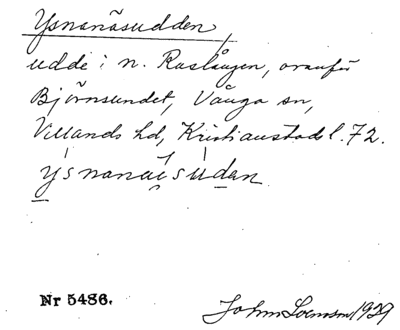 Ysnanäsudden,
udde i n. Raslången, ovanför
Björnsundet, Vånga sn,
Villands hd, Kristianstads l. 72.
Nr 5486.
John 1929